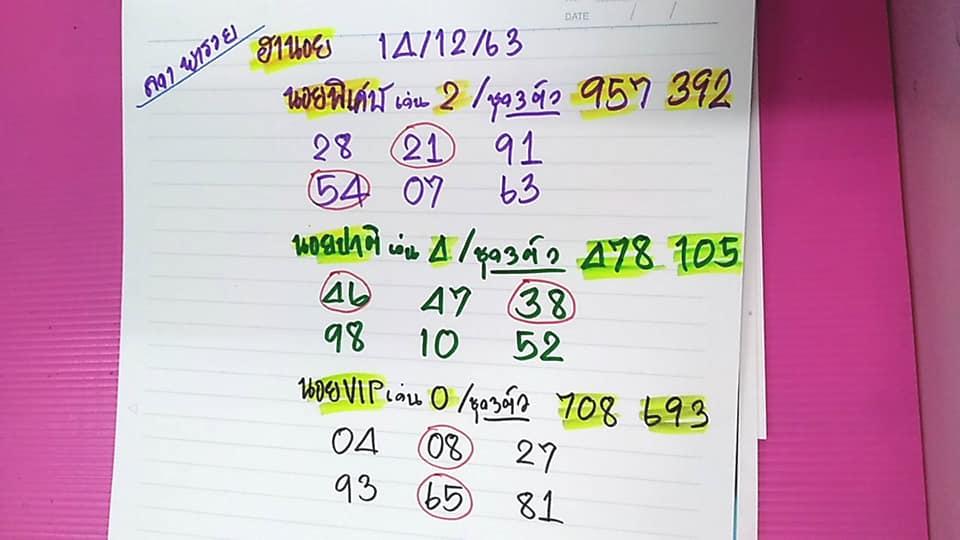 DATE / /
ฮานอย 14/12/63
นอยพิเศษ เด่น 2 / ชุด 3 ตัว 957 392
28 21 91
54 07 63
นอยปกติ เด่น 4 / ชุด 3 ตัว 478 105
46 47 38
98 10 52
นอย VIP เด่น 0 / ชุด 3 ตัว 708 693
04 08 27
93 65 81